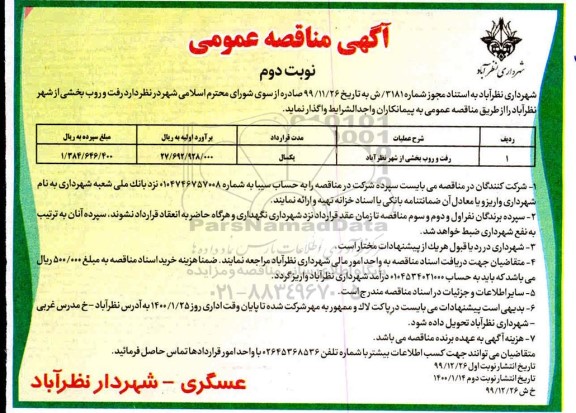 آگهی مناقصه عمومی
نوبت دوم
شهرداری نظرآباد
شهرداری نظرآباد به استناد مجوز شماره ۳۱۸۱/ش به تاریخ ۹۹/۱۱/۲۶ صادره از سوی شورای محترم اسلامی شهر در نظر دارد رفت و روب بخشی از شهر
نظرآباد را از طریق مناقصه عمومی به پیمانکاران واجدالشرایط واگذار نماید.
ردیف شرح عملیات مدت قرارداد برآورد اولیه به ریال مبلغ سپرده به ریال
۱ رفت و روب بخشی از شهر نظرآباد یکسال ۲۷/۶۹۲/۹۲۸/۰۰۰ ۱/۳۸۴/۶۴۶/۴۰۰
۱- شرکت کنندگان در مناقصه می بایست سپرده شرکت در مناقصه را به حساب سیبا به شماره ۰۱۰۴۷۴۶۷۵۷۰۰۸ نزد بانک ملی شعبه شهرداری به نام
شهرداری واریز و یا معادل آن ضمانتنامه بانکی یا اسناد خزانه تهیه و ارائه نمایند.
۲- سپرده برندگان نفر اول و دوم و سوم مناقصه تا زمان عقد قرارداد نزد شهرداری نگهداری و هرگاه حاضر به انعقاد قرارداد نشوند، سپرده آنان به ترتیب
به نفع شهرداری ضبط خواهد شد.
۳- شهرداری در رد یا قبول هر یک از پیشنهادات مختار است.
۴- متقاضیان جهت دریافت اسناد مناقصه به واحد امور مالی شهرداری نظرآباد مراجعه نمایند. ضمنا هزینه خرید اسناد مناقصه به مبلغ ۵۰۰/۰۰۰ ریال
می باشد که باید به حساب ۰۱۰۴۵۳۴۰۲۱۰۰۰ درآمد شهرداری نظرآباد واریز گردد.
۵- سایر اطلاعات و جزئیات در اسناد مناقصه مندرج است.
۶- بدیهی است پیشنهادات می بایست در پاکت لاک و ممهور به مهر شرکت شده تا پایان وقت اداری روز ۱۴۰۰/۱/۲۵ به آدرس نظرآباد - خ مدرس غربی
- شهرداری نظرآباد تحویل داده شود.
۷- هزینه آگهی به عهده برنده مناقصه می باشد.
متقاضیان می توانند جهت کسب اطلاعات بیشتر با شماره تلفن ۰۲۶۴۵۳۶۸۵۳۶ با واحد امور قراردادها تماس حاصل فرمائید.
تاریخ انتشار نوبت اول ۹۹/۱۲/۲۶
تاریخ انتشار نوبت دوم ۱۴۰۰/۱/۱۴
خ ش ۹۹/۱۲/۲۶
عسگری - شهردار نظرآباد
ParsNamadData
۰۲۱-۸۸۳۴۹۶۷۰-۵